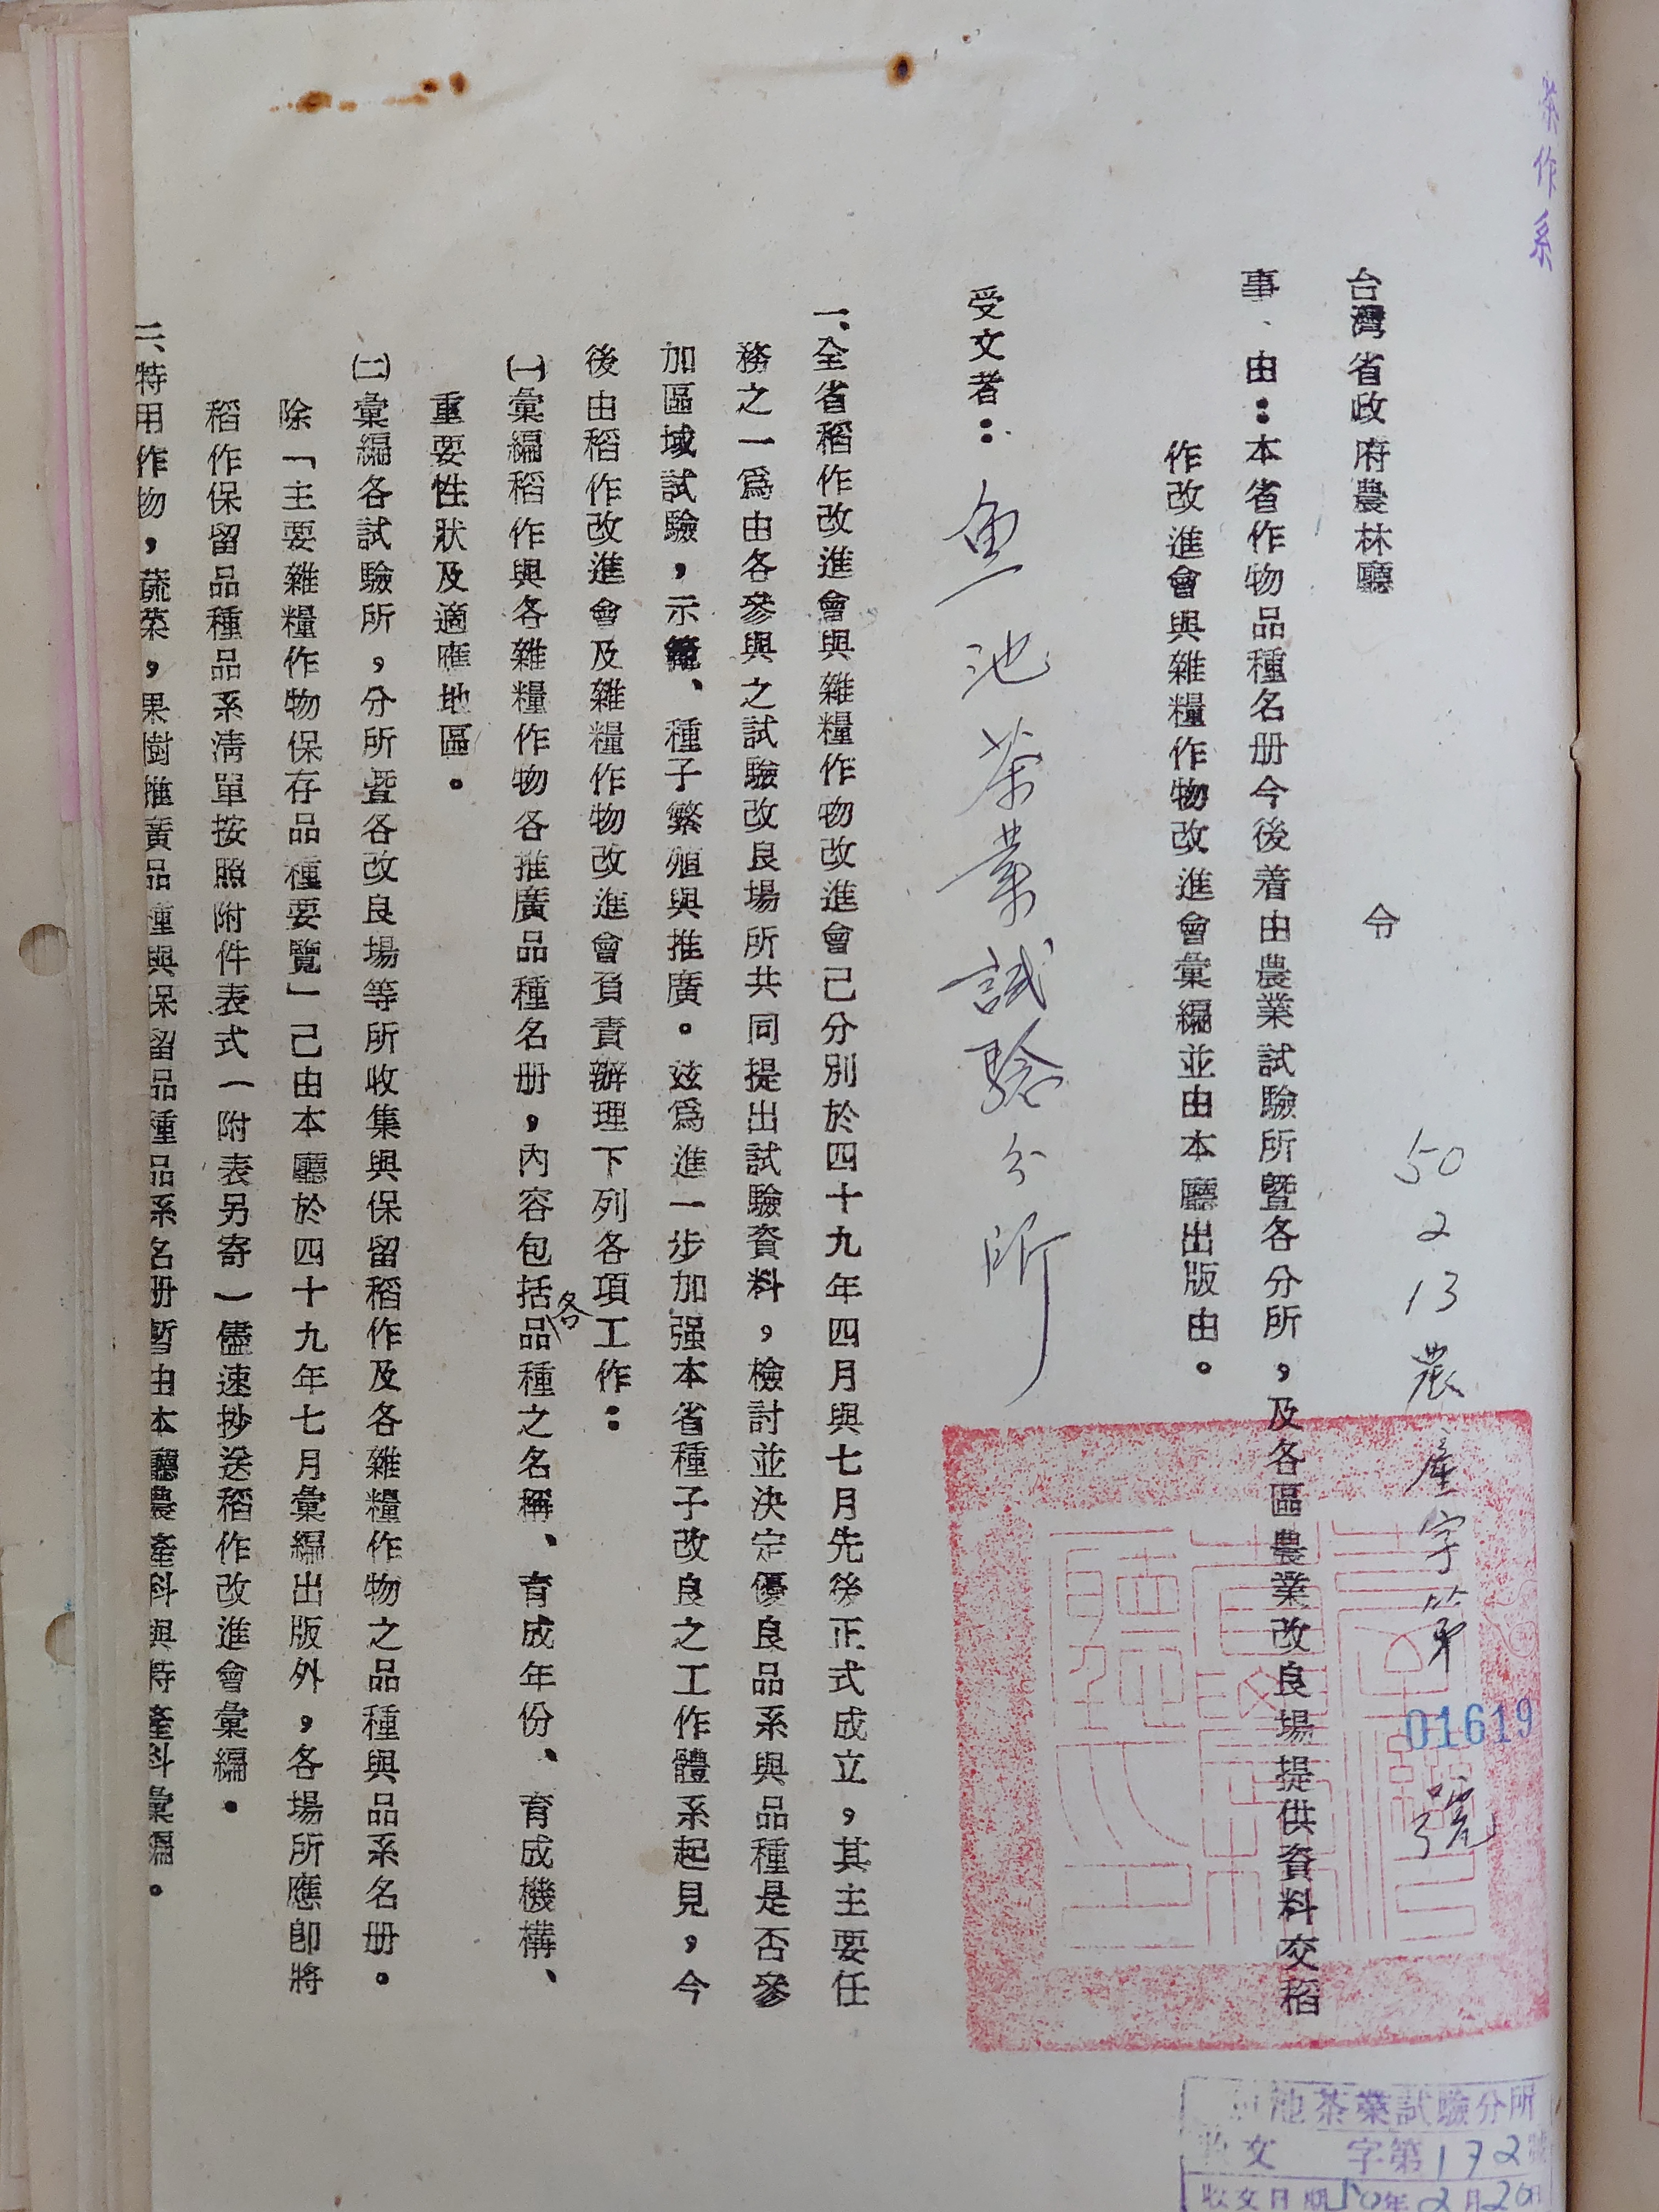 茶作系
台灣省政府農林廳　令
50 2 13 農產字第 01619 號
事、由：本省作物品種名册今後着由農業試驗所暨各分所，及各區農業改良場提供資料交稻
作改進會與雜糧作物改進會彙編並由本廳出版由。
受文者：魚池茶業試驗分所
一、全省稻作改進會與雜糧作物改進會己分別於四十九年四月與七月先後正式成立，其主要任
務之一爲由各參與之試驗改良場所共同提出試驗資料，檢討並決定優良品系與品種是否參
加區域試驗，示範、種子繁殖與推廣。玆爲進一步加强本省種子改良之工作體系起見，今
後由稻作改進會及雜糧作物改進會負責辦理下列各項工作：
㈠彙編稻作與各雜糧作物各推廣品種名册，內容包括各品種之名稱、育成年份、育成機構、
重要性狀及適應地區。
㈡彙編各試驗所，分所暨各改良場等所收集與保留稻作及各雜糧作物之品種與品系名册。
除「主要雜糧作物保存品種要覽」己由本廳於四十九年七月彙編出版外，各場所應卽將
稻作保留品種品系清單按照附件表式（附表另寄）儘速抄送稻作改進會彙編。
二、特用作物，蔬菜，果樹推廣品種與保留品種品系名册暫由本廳農產科與特產科彙編。
池茶業試驗分所
收文　字第132號
收文日期50年2月20日